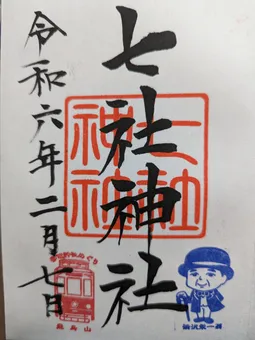 七社神社
令和六年二月七日
七社
神社
飛鳥山
渋沢栄一翁